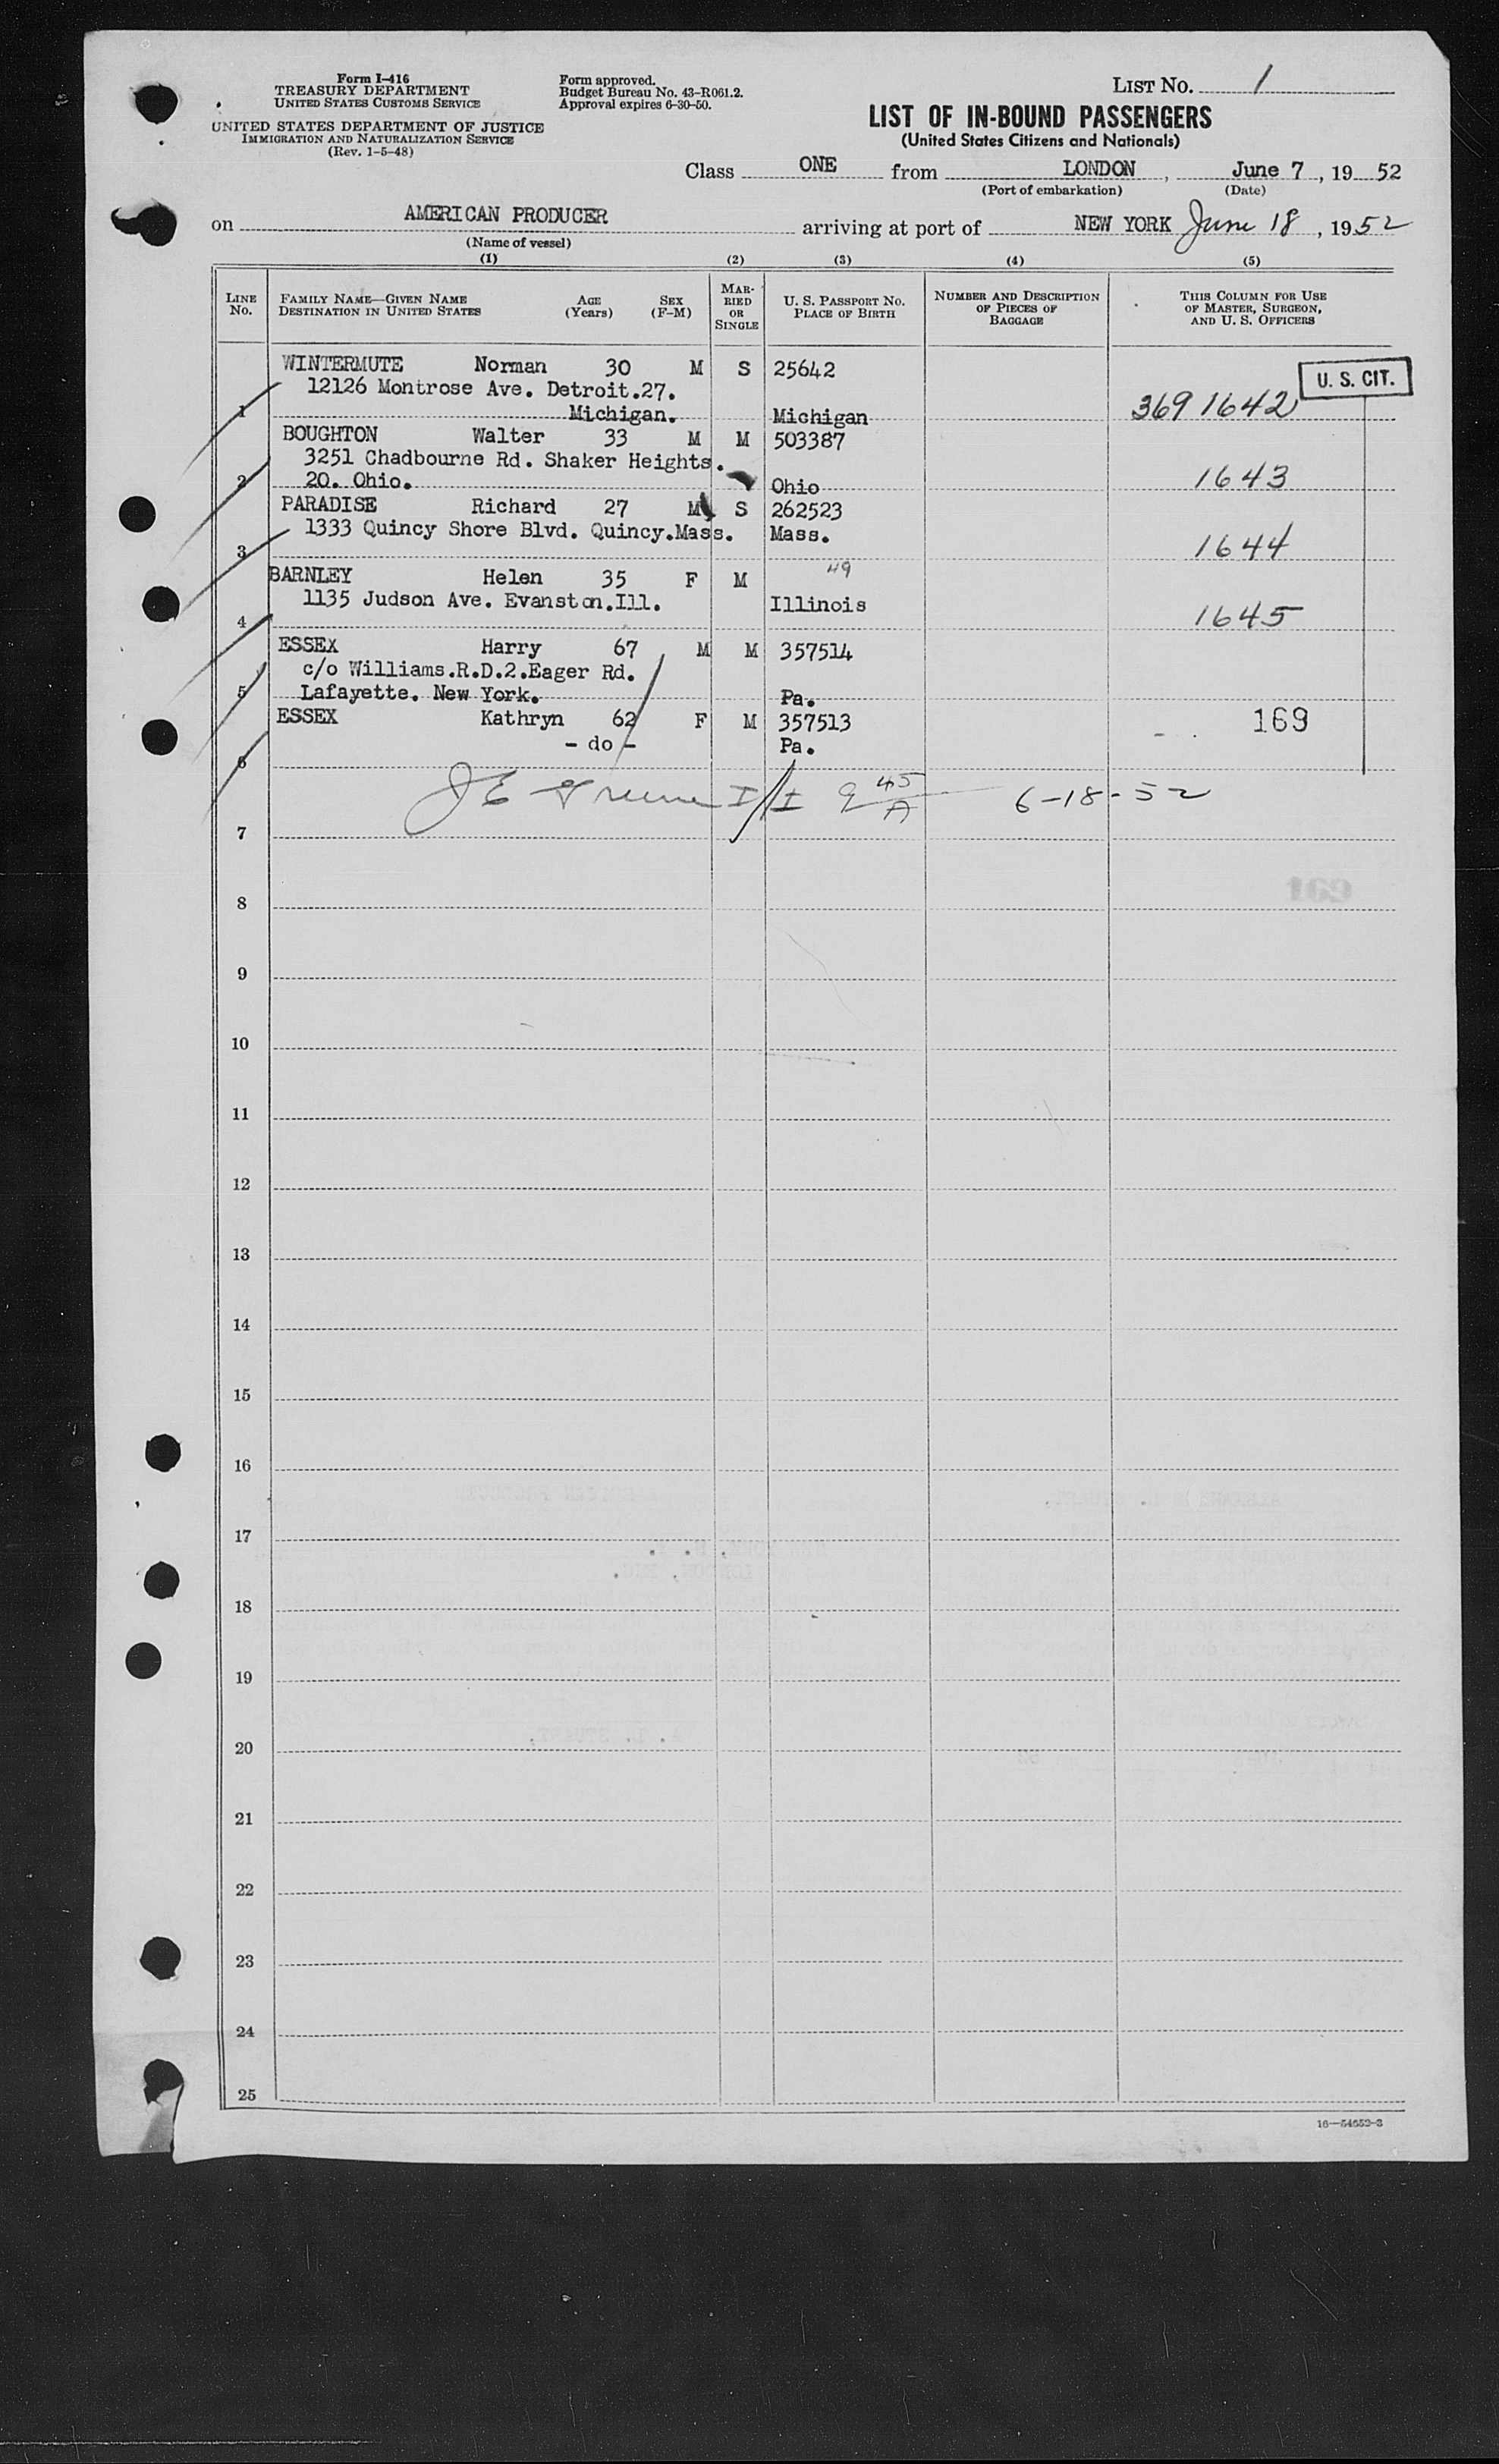 Form I-416
TREASURY DEPARTMENT
UNITED STATES CUSTOMS SERVICE
UNITED STATES DEPARTMENT OF JUSTICE
IMMIGRATION AND NATURALIZATION SERVICE
(Rev. 1-5-48)
Form approved.
Budget Bureau No. 43-R061.2.
Approval expires 6-30-50.
LIST No. 1
LIST OF IN-BOUND PASSENGERS
(United States Citizens and Nationals)
Class ONE from LONDON, June 7, 1952
(Port of embarkation) (Date)
on AMERICAN PRODUCER arriving at port of NEW YORK June 18, 1952
(Name of vessel)
(1) (2) (3) (4) (5)
LINE No. FAMILY NAME—GIVEN NAME DESTINATION IN UNITED STATES AGE (Years) SEX (F-M) MARRIED OR SINGLE U. S. PASSPORT No. PLACE OF BIRTH NUMBER AND DESCRIPTION OF PIECES OF BAGGAGE THIS COLUMN FOR USE OF MASTER, SURGEON, AND U. S. OFFICERS
WINTERMUTE Norman 30 M S 25642
U. S. CIT.
12126 Montrose Ave. Detroit.27.
1 Michigan. Michigan 369 1642
BOUGHTON Walter 33 M M 503387
3251 Chadbourne Rd. Shaker Heights.
2 20. Ohio. Ohio 1643
PARADISE Richard 27 M S 262523
1333 Quincy Shore Blvd. Quincy.Mass. Mass.
3 1644
BARNLEY Helen 35 F M 49
1135 Judson Ave. Evanston.Ill. Illinois
4 1645
ESSEX Harry 67 M M 357514
c/o Williams.R.D.2.Eager Rd.
5 Lafayette. New York. Pa.
ESSEX Kathryn 62 F M 357513 169
- do - Pa.
6
J E Greene I/I 9 45 A 6-18-52
7
8
169
9
10
11
12
13
14
15
16
17
18
19
20
21
22
23
24
25
16—54652-3